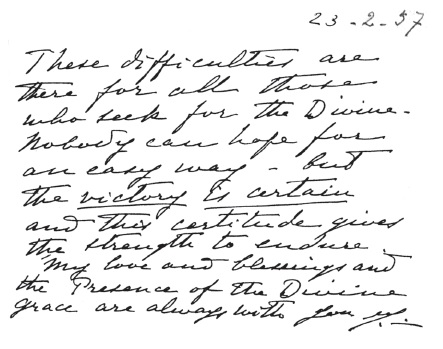 23-2-57
These difficulties are
there for all those
who seek for the Divine.
Nobody can hope for
an easy way - but
the victory is certain
and this certitude gives
the strength to endure.
My love and blessings and
the Presence of the Divine
grace are always with you